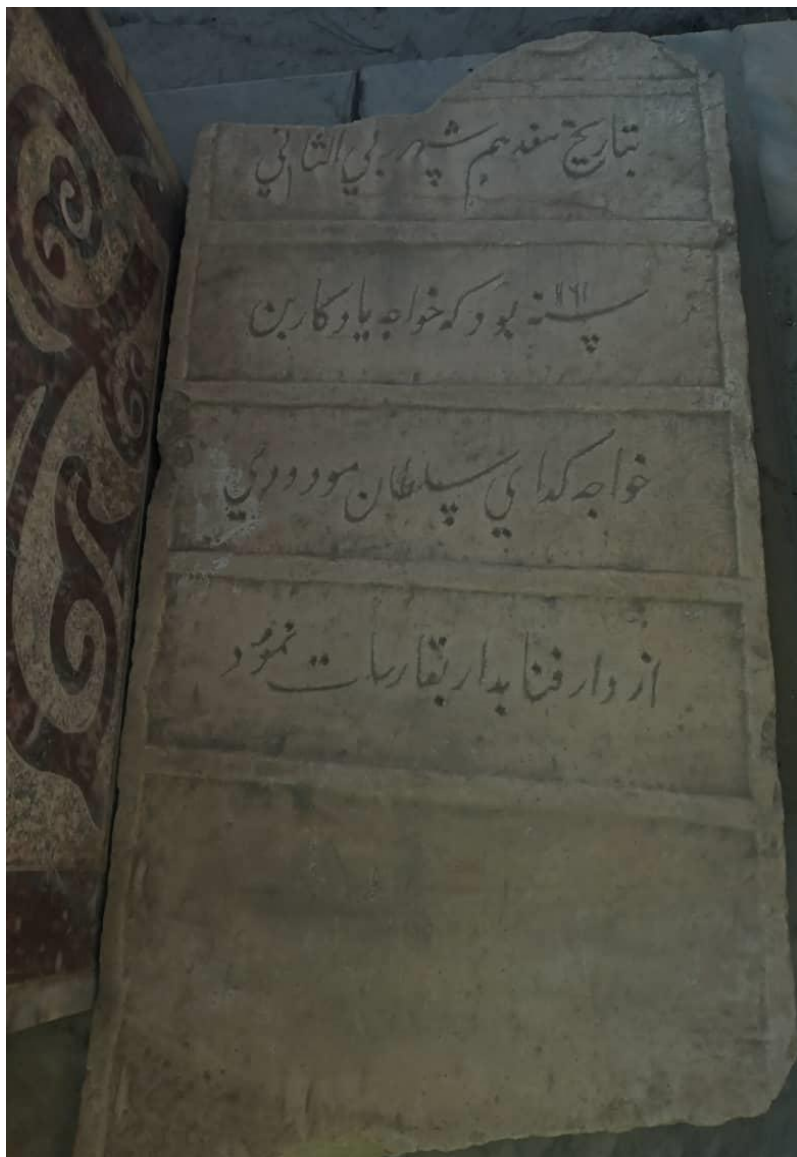 بتاریخ هفدهم شهر بي الثاني
سنه ۹۶۱ بود که خواجه یادکار بن
خواجه کدای سلطان مودودي
از دار فنا بدار بقا رحلت نمود